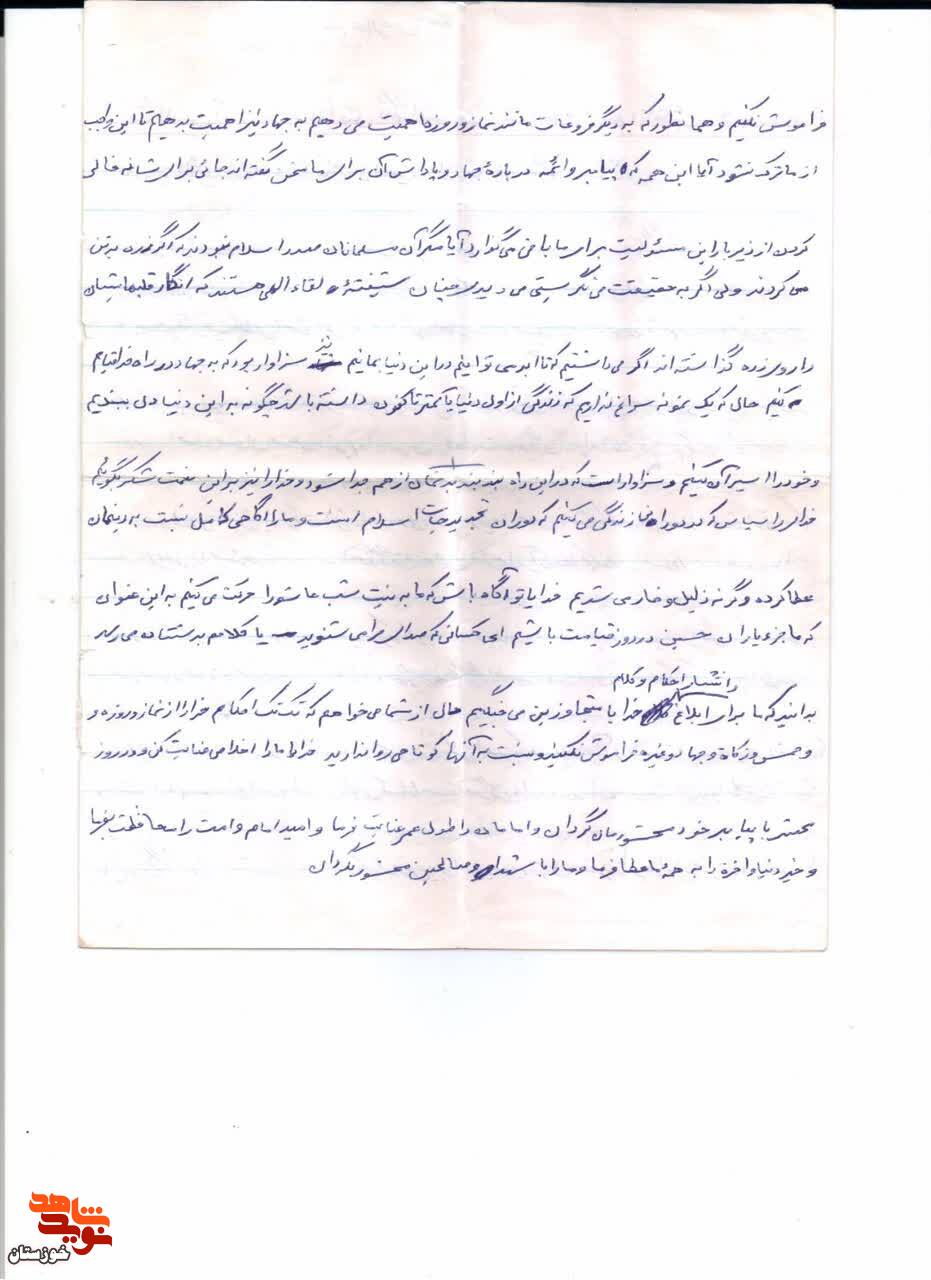 فراموش نکنیم و همانطور که به دیگر فروعات مانند نماز و روزه اهمیت می دهیم به جهاد نیز اهمیت بدهیم تا این واجب
از ما ترک نشود آیا این همه که پیامبر و ائمه درباره جهاد و پاداش آن برای ما سخن گفته اند جائی برای شانه خالی
کردن از زیر بار این مسئولیت برای ما باقی می گذارد آیا مگر آن مسلمانان صدر اسلام نبودند که اگر زره به تن
می کردند ولی اگر به حقیقت می نگریستی می دیدی چنان شیفتهٔ لقاء الهی هستند که انگار قلبهایشان
را روی زره گذاشته اند اگر می دانستیم که تا ابد می توانیم در این دنیا بمانیم شاید سزاوار بود که به جهاد در راه خدا قیام
نکنیم حال که یک نمونه سراغ نداریم که زندگی از اول دنیا تا کنون داشته باشد چگونه به این دنیا دل ببندیم
و خود را اسیر آن کنیم و سزاوار است که در این راه بند بند بدنمان از هم جدا شود و خدا را نیز بر این نعمت شکر بگوئیم
خدای را سپاس که در دوره زندگی می کنیم که دوران تجدید حیات اسلام است و ما را آگاهی کامل نسبت به دینمان
عطا کرده وگرنه ذلیل و خار می شدیم خدایا تو آگاه باش که ما به نیت شب عاشورا حرکت می کنیم به این عنوان
که ما جزء یاران حسین در روز قیامت باشیم ای کسانی که صدای مرا می شنوید یا کلامم بدستتان می رسد
و انتشار احکام و کلام
بدانید که ما برای ابلاغ خدا با متجاوزین می جنگیم حال از شما می خواهم که تک تک احکام خدا را از نماز و روزه و
و خمس و زکاة و جهاد و غیره فراموش نکنید و نسبت به آنها کوتاهی روا ندارید خدایا ما را اخلاص عنایت کن و در روز
محشر با پیامبر خود محشورمان گردان و امام را طول عمر عنایت فرما و امید امام و امت را محافظت بفرما
و خیر دنیا و آخرة را به همهٔ ما عطا فرما و ما را با شهداء و صالحین محشور بگردان
نوید شاهد
خوزستان